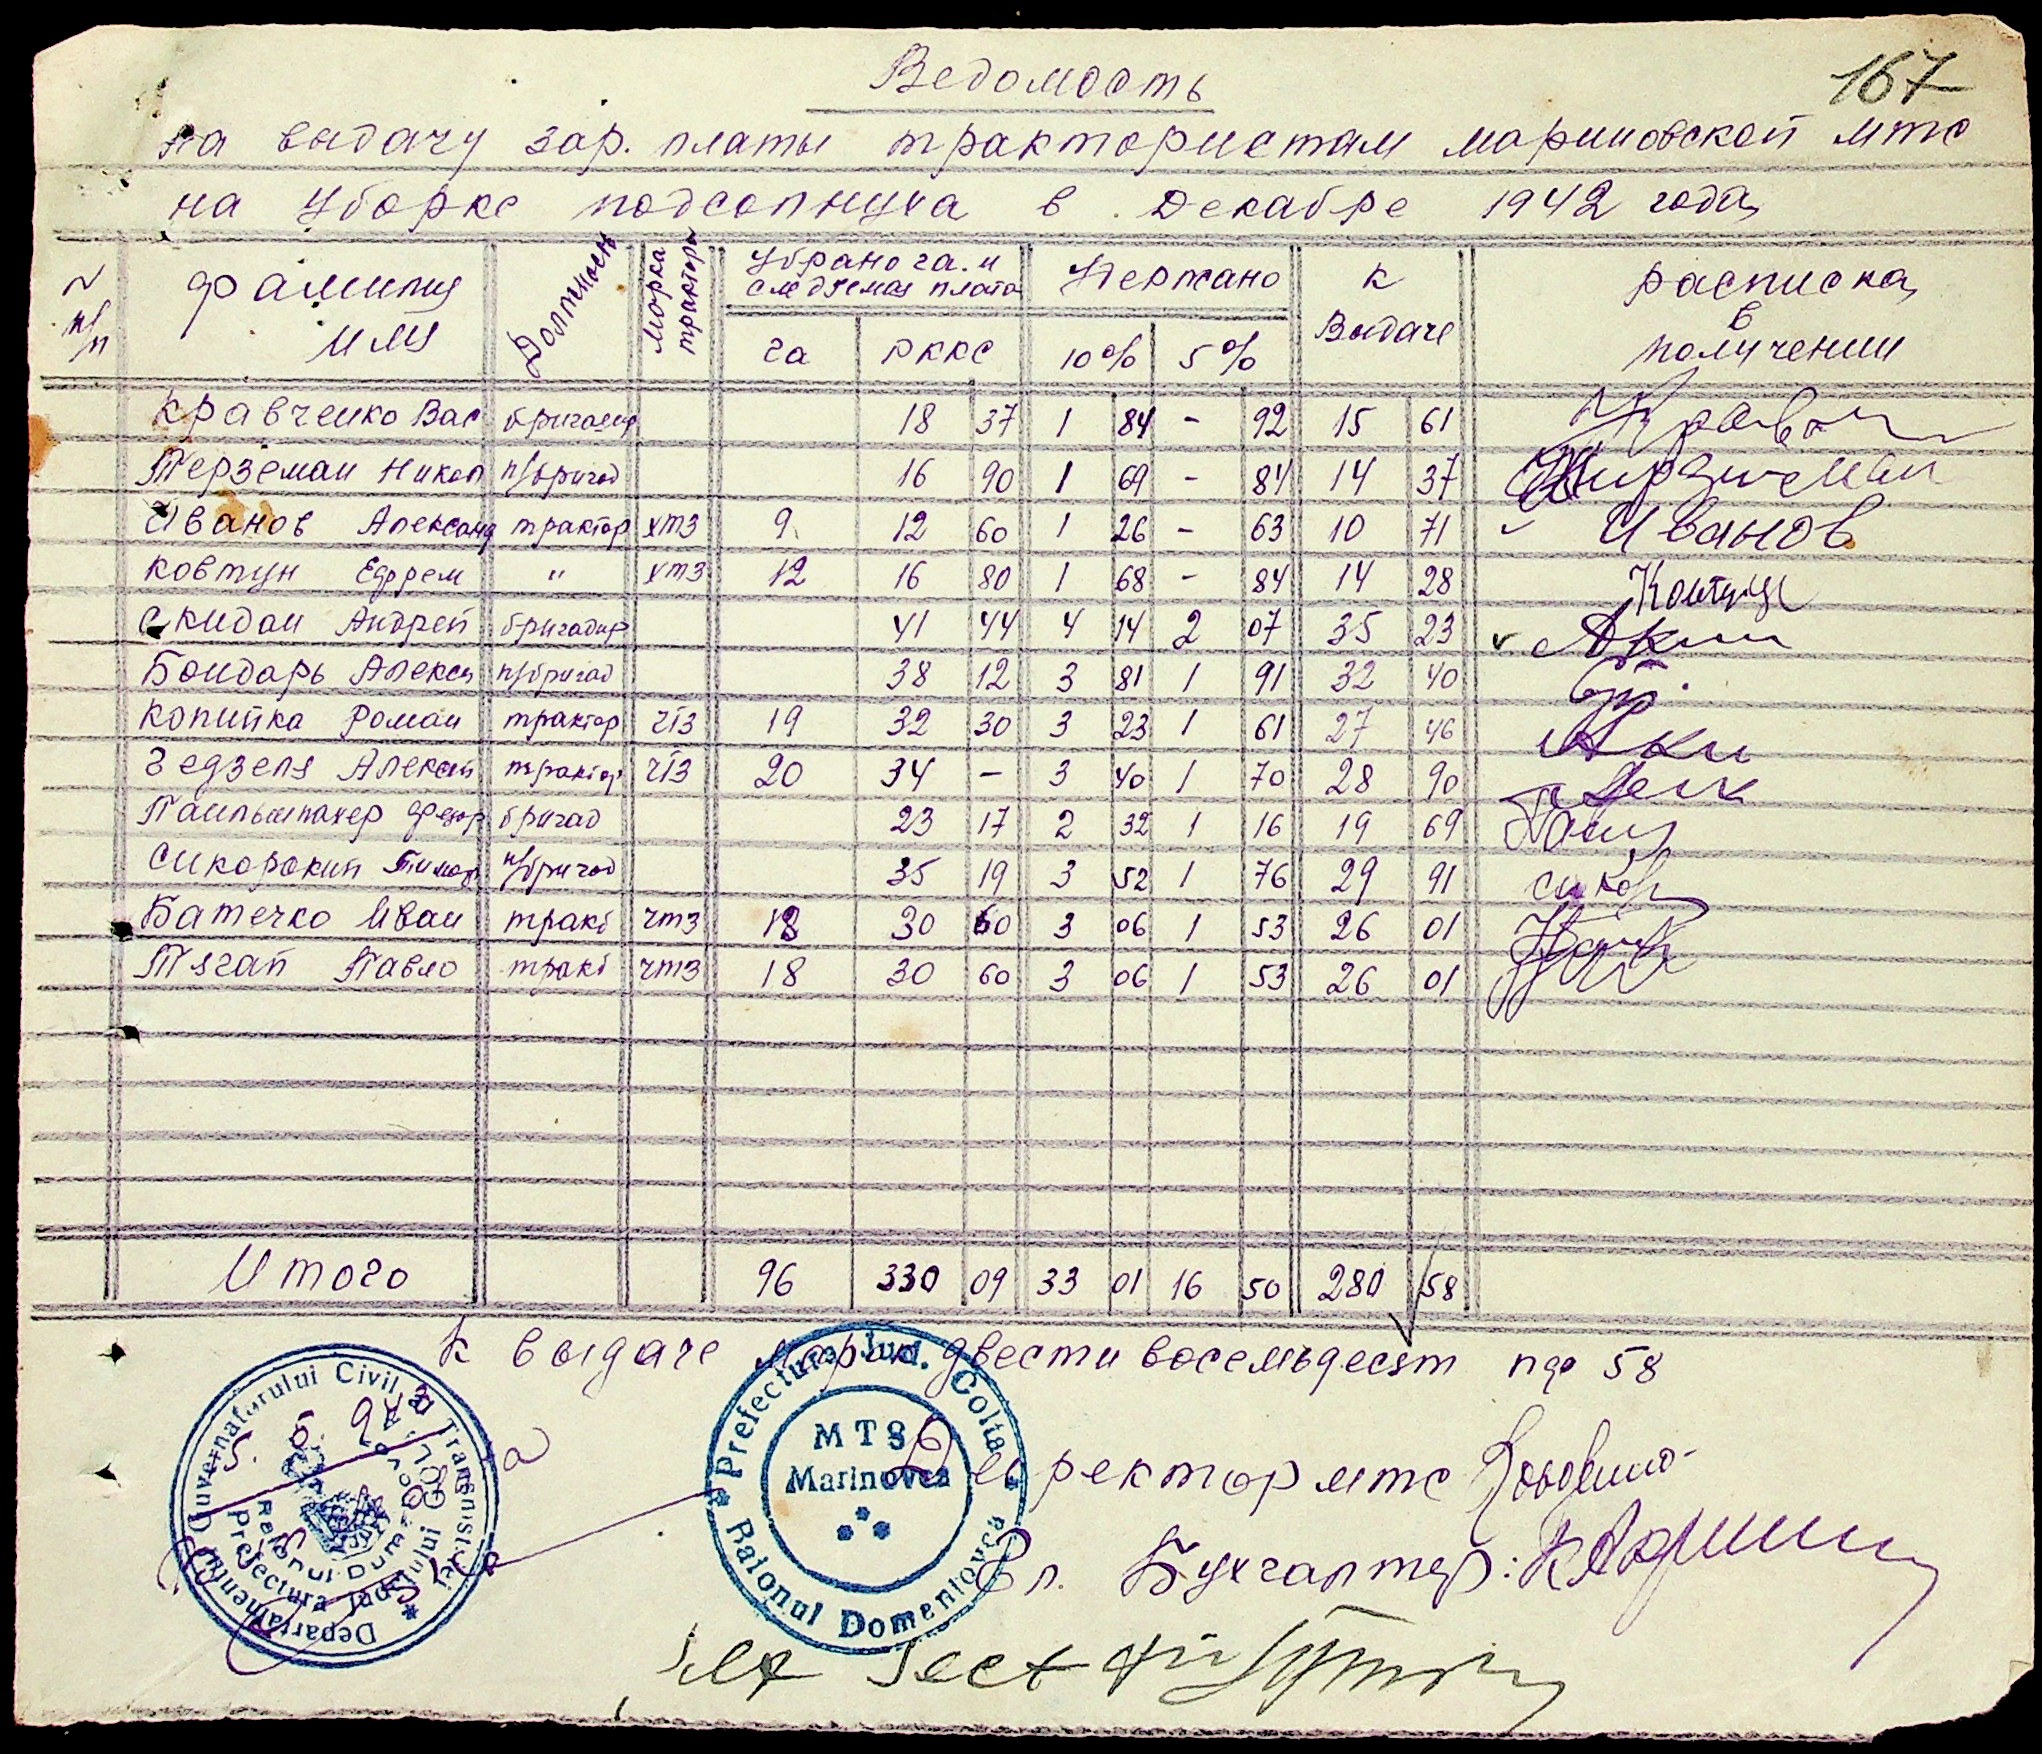 167
Ведомость
на выдачу зар. платы трактористам мариновской мтс
на уборке подсолнуха в Декабре 1942 года
N п/п фамилия имя Должность Марка трактора Убрано га. и следуемая плата Держано К Выдаче расписка в получении
га РККС 10% 5%
Кравченко Вас бригадир 18 37 1 84 - 92 15 61
Терземан Никол п/бригад 16 90 1 69 - 84 14 37
Иванов Александ трактор ХТЗ 9 12 60 1 26 - 63 10 71 Иванов
Ковтун Ефрем " ХТЗ 12 16 80 1 68 - 84 14 28
Скидан Андрей бригадир 41 44 4 14 2 07 35 23
Бондарь Алексей п/бригад 38 12 3 81 1 91 32 40
Копийка Роман трактор ЧТЗ 19 32 30 3 23 1 61 27 46
Гедзель Алексей трактор ЧТЗ 20 34 - 3 40 1 70 28 90
Панльшпакер Федор бригад 23 17 2 32 1 16 19 69
Сикорский Тимоф п/бригад 35 19 3 52 1 76 29 91
Батечко Иван тракт ЧТЗ 18 30 60 3 06 1 53 26 01
Тягай Павло тракт ЧТЗ 18 30 60 3 06 1 53 26 01
Итого 96 330 09 33 01 16 50 280 58
К выдаче марак двести восемьдесят пф 58
Директор мтс
Гл. Бухгалтер:
Prefectura Jud. Golta
MTS
Marinovca
Raionul Domaniovca
Guvernatorului Civil al Transnistriei
Departamentul
Prefectura Judetului
Raionul